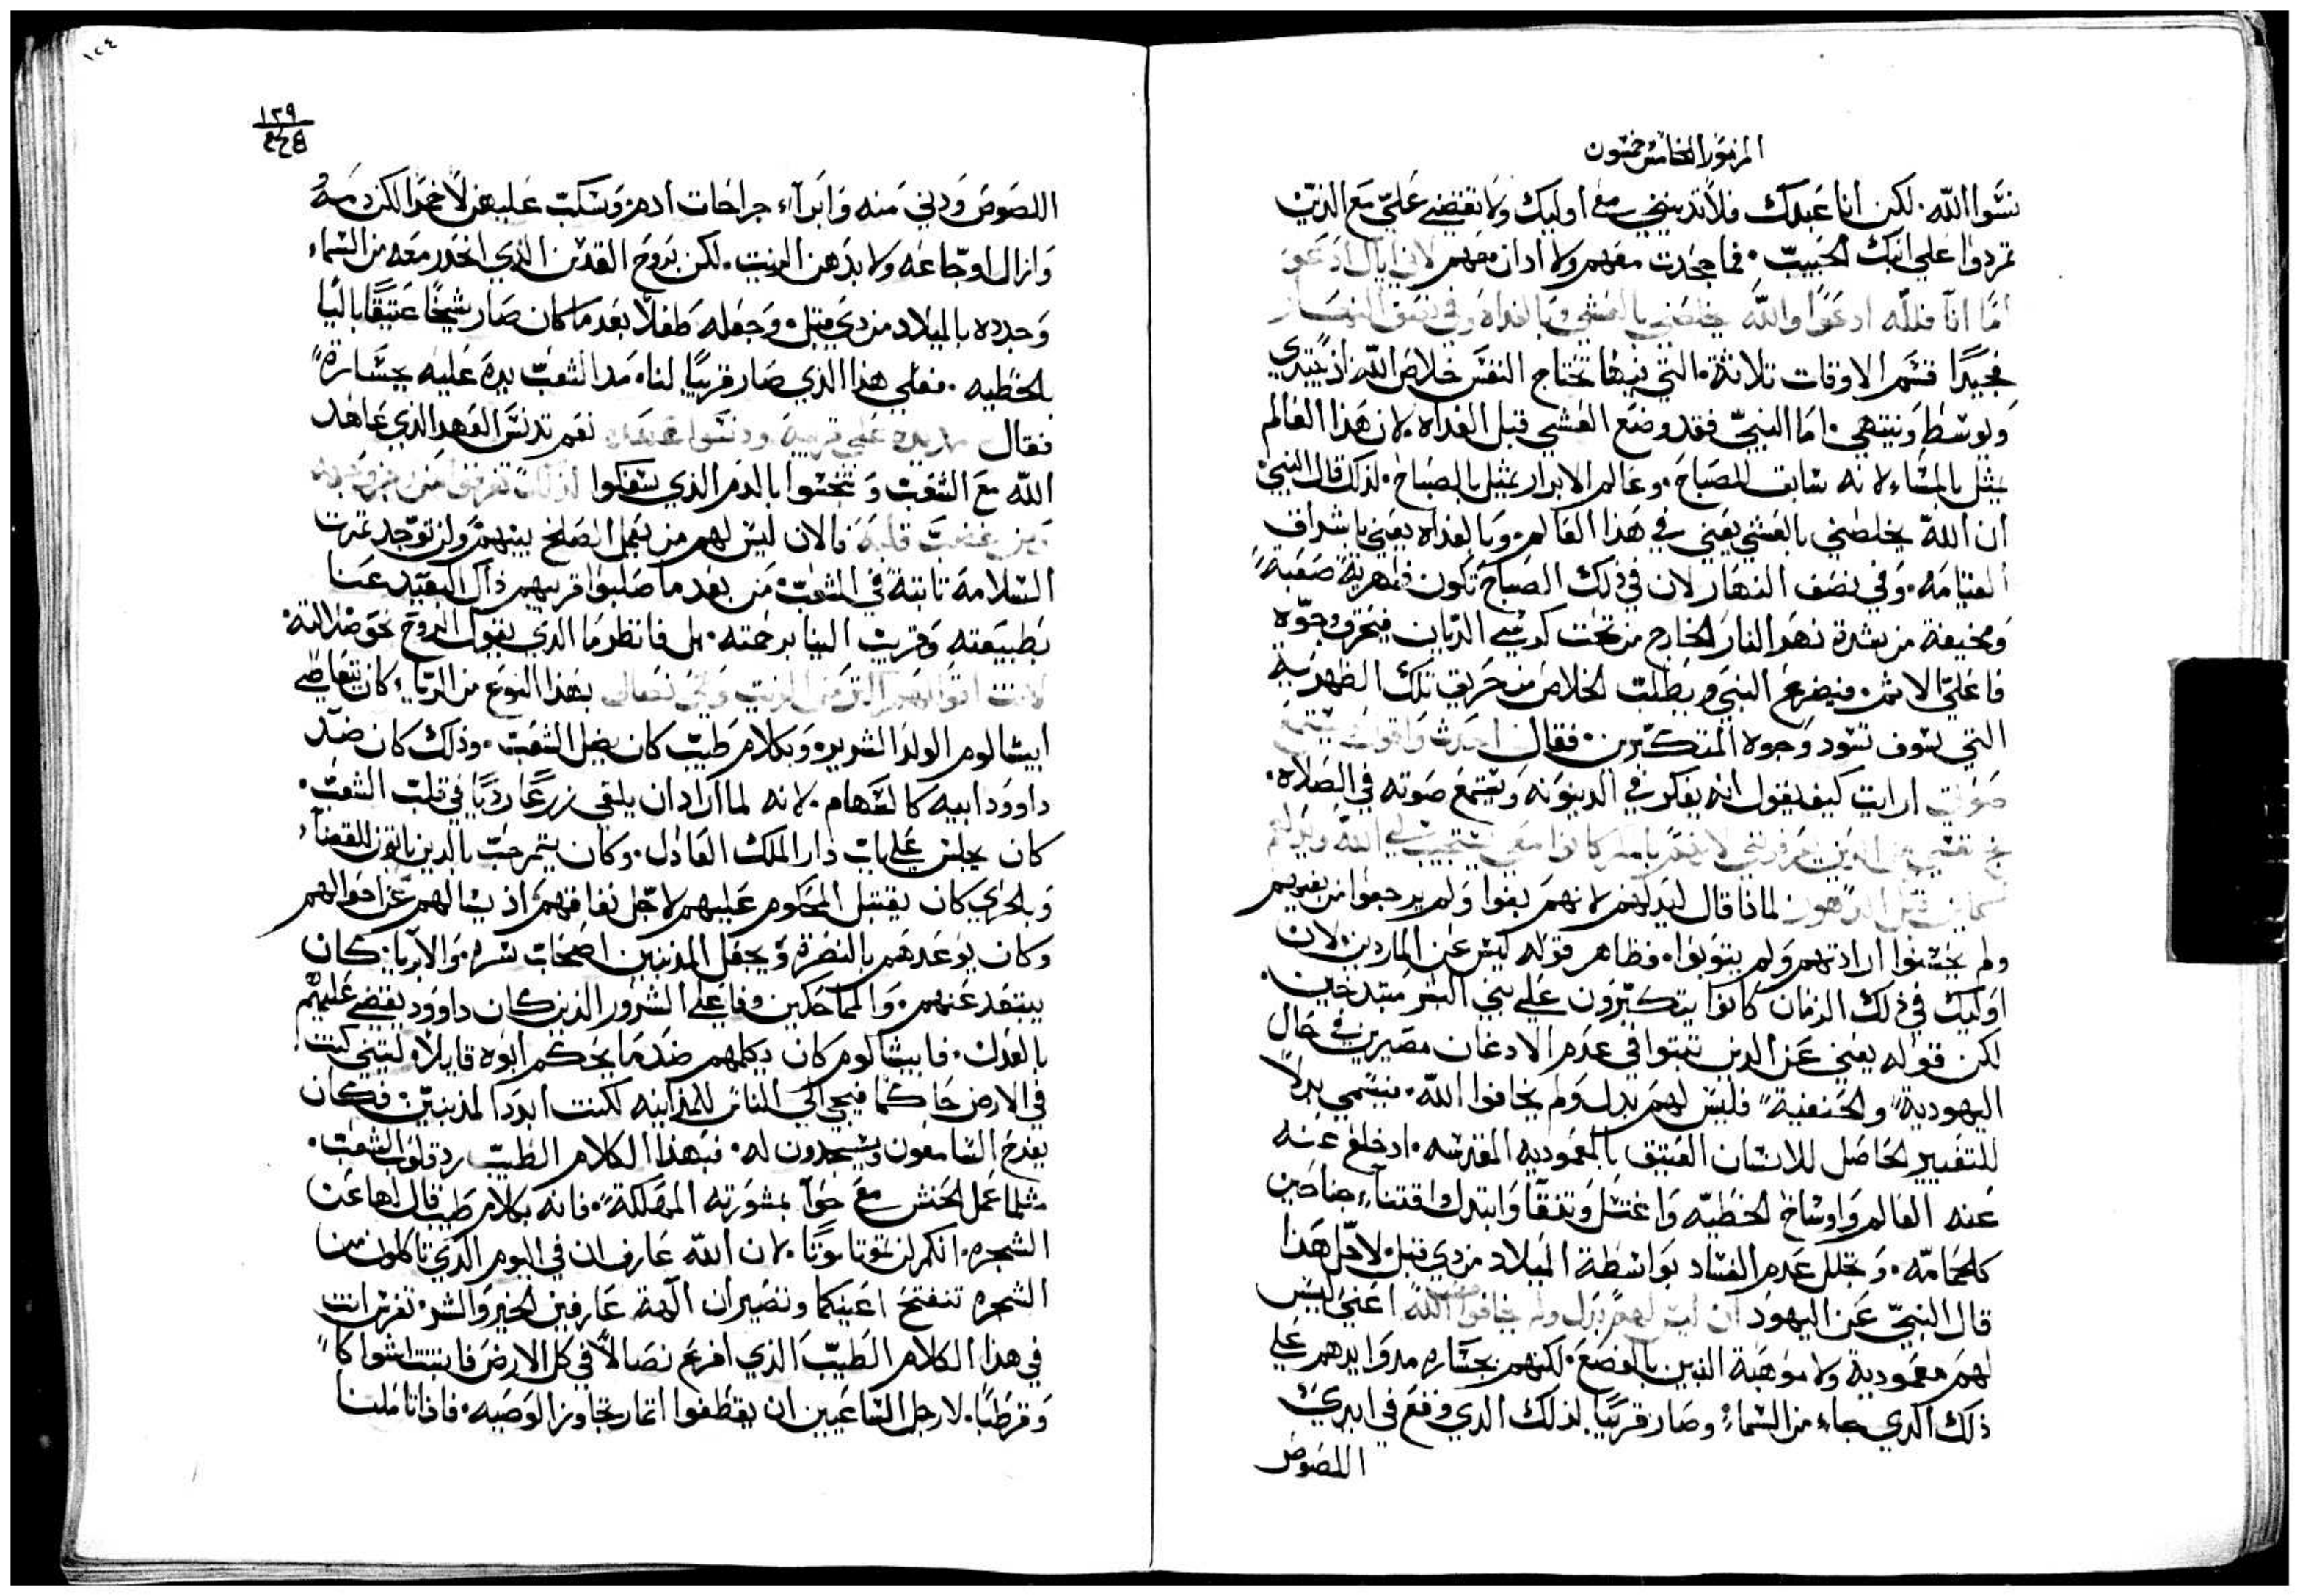 المزمور الخامس خمسون
نسوا الله. لكن انا عبدك فلا تدينني مع اوليك ولا تقتضي عليّ مع الذين
تمردوا على ابنك الحبيب. فما جحدت معهم ولا ادان معهم لاني
اما انا فلله ادعوا والله يخلصني بالعشي وبالغداه وفي نصف النهار
فجيدًا قسم الاوقات تلاتة. التي فيها تحتاج النفس خلاص الله اذ يبتدي
ويوسط وينتهي. اما النبيّ فقد وضع العشي قبل الغداه. لان هذا العالم
يمثل بالمساء لانه سابق للصباح. وعالم الابرار يمثل بالصباح. لذلك قال النبي
ان الله يخلصني بالعشي يعني في هذا العالم. وبالغداه يعني باشراف
القيامه. وفي نصف النهار لان في ذلك الصباح تكون ظهرية صعبة
ومخيفة من شدة نهر النار الخارج من تحت كرسي الديان فيحرق وجوه
فاعليّ الاثم. فيضرع النبي ويطلب الخلاص من حريق تلك الظهريه
التي سوف تسود وجوه المتكبرين. فقال احدث واقول فيسمع
صوتي ارايت كيف يقول انه يفكر في الدينونه ويستمع صوته في الصلاه.
الله
لماذا قال ليدلهم لانهم بغوا ولم يرجعوا من بغيهم
ولم يحسنوا ارادتهم ولم يتوبوا. فظاهر قوله ليس عن الماردين. لان
اوليك في ذلك الزمان كانوا يتكبرون على بني البشر متبدخين.
لكن قوله يعني عن الدين تبتوا في عدم الادعان مصيرين في حال
اليهودية والحنفية فليس لهم بدل ولم يخافوا الله. فيسمي بدلًا
للتغيير الحاصل للانسان العتيق بالمعموديه المقدسه. اد خلع عنه
عنه العالم واوساخ الخطيه واغتسل وتنقا وابتدل واقتناء جناحين
كالحمامه. وتجلل عدم الفساد بواسطة الميلاد من دي قبل. لاجل هذا
قال النبيّ عن اليهود ان ليس لهم بدل ولم يخافوا الله اعني ليس
لهم معمودية ولا موهبة البنين بالوضع. لكنهم بجساره مدوا ايدهم على
ذلك الدي جاء من السماء وصار قريبًا لذلك الدي وقع في ايدي
اللصوص
١٢٤
١٣٩
اللصوص ودني منه وابراء جراحات ادم. وسكب عليهن لا خمرًا لكن دمه
وازال اوجاعه ولا بدهن الزيت. لكن بروح القدس الذي انحدر معه من السماء
وجدده بالميلاد من دي قبل. وجعله طفلًا بعد ما كان صار شيخًا عتيقًا باليًا
بالخطيه. فعلى هذا الذي صار قريبًا لنا. مد الشعب يده عليه بجسارة
فقال مد يده على قريبه ودنسوا عهده نعم تدنس العهد الذي عاهد
الله مع الشعب وتنجسوا بالدم الذي سفكوا
قلبه فالان ليس لهم من يعمل الصلح بينهم ولن توجد تمرت
السلامة تابتة في الشعب. من بعد ما صلبوا قريبهم ذاك البعيد عنا
بطبيعته وقريب الينا برحمته. بل فانظر ما الدي يقول الروح نحو ضلالته.
بهذا النوع من الريا كان يتعاطي
ابيشالوم الولد الشرير. وبكلام طيب كان يضل الشعب. وذلك كان ضد
داوود ابيه كالسهام. لانه لما اراد ان يلقي زرعًا رديًا في قلب الشعب.
كان يجلس على باب دار الملك العادل. وكان يتمرحب بالدين ياتون للقضاء
وبالحري كان يقتبل المحكوم عليهم لاجل نفاقهم. اذ يسالهم عن احوالهم
وكان يوعدهم بالنضرة ويجعل المدنبين اصحاب شره. والابريا كان
يبتعد عنهم. والمماحكين وفاعلي الشرور الذين كان داوود يقضي عليهم
بالعدل. فابيشالوم كان يكلمهم ضد ما يحكم ابوه قايلا. ليتني كنت
في الارض حاكمًا فيجي الي الناس للمداينه لكنت ابرر المدنبين. فكان
يفرح السامعون ويسجدون له. فبهذا الكلام الطيب رد قلوب الشعب.
مثلما عمل الحنش مع حوا بمشورته المهلكة. فانه بكلام طيب قال لها عن
الشجره. انكم لن تموتا موتًا. لان الله عارف ان في اليوم الذي تاكلون من
الشجره تنفتح اعينكما وتصيران آلهة عارفين الخير والشر. تفرس انت
في هذا الكلام الطيب الذي افرع نصالًا في كل الارض فابنتت اشواكًا
وقرطبًا. لارجل الساعيين ان يقطفوا اتمار تجاوز الوصيه. فاذا تاملنا